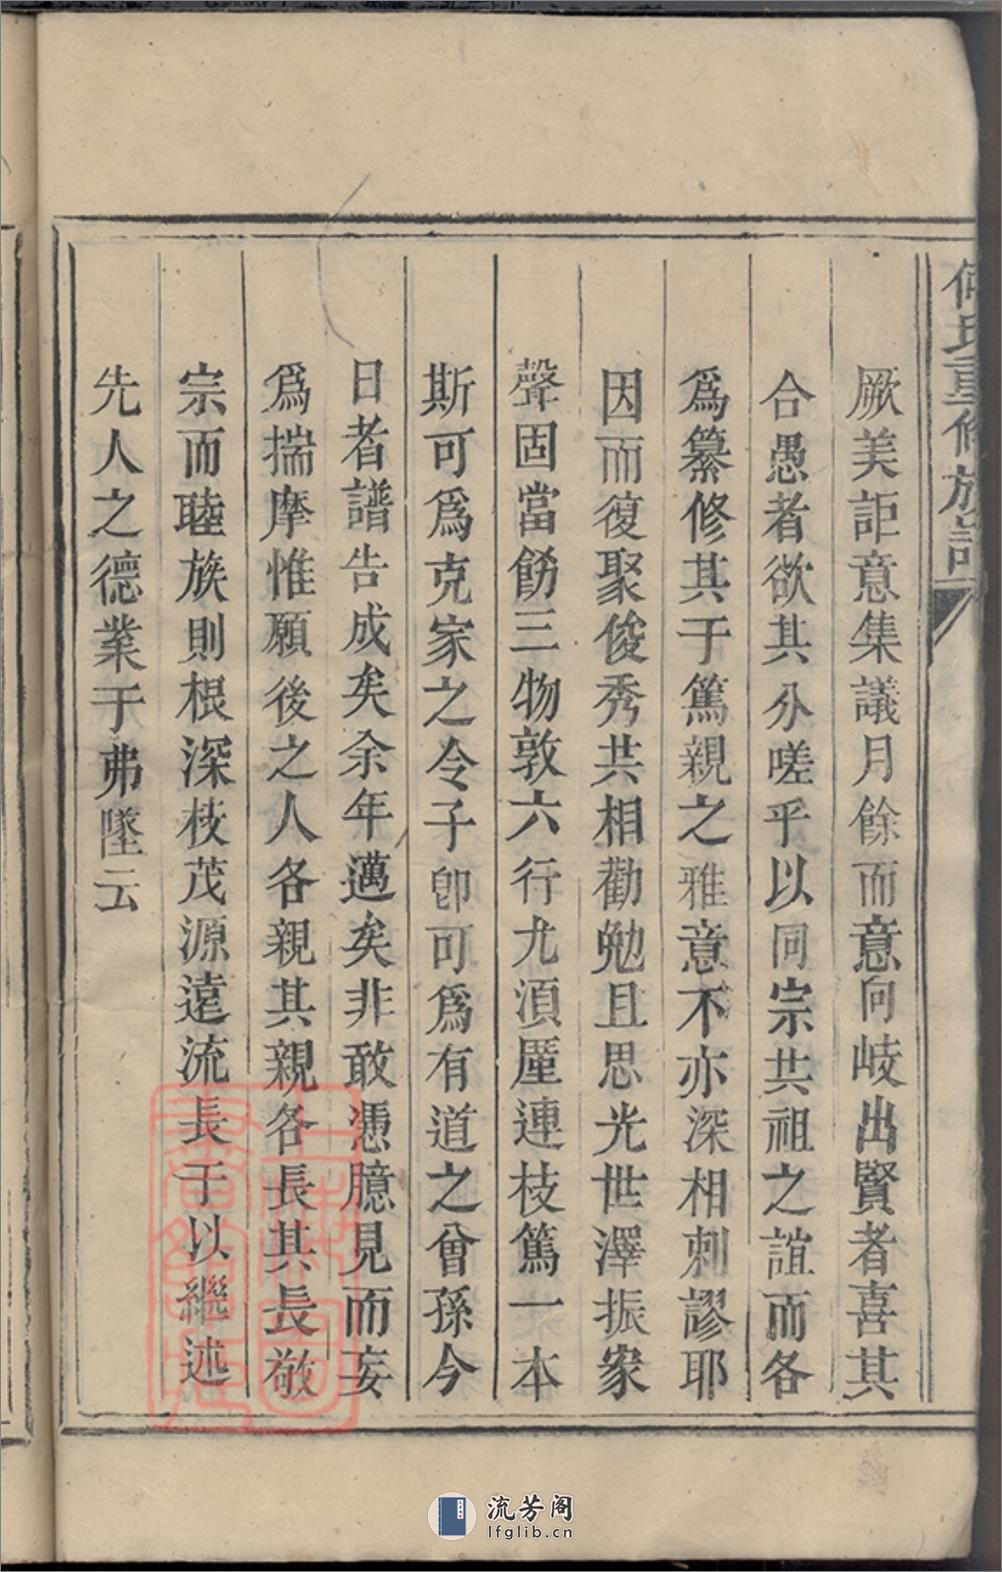 何氏重修族譜
厥美詎意集議月餘而意向岐出賢者喜其
合愚者欲其分嗟乎以同宗共祖之誼而各
為纂修其于篤親之雅意不亦深相刺謬耶
因而復聚俊秀共相勸勉且思光世澤振家
聲固當飭三物敦六行尤須厪連枝篤一本
斯可為克家之令子卽可為有道之曾孫今
日者譜告成矣余年邁矣非敢憑臆見而妄
為揣摩惟願後之人各親其親各長其長敬
宗而睦族則根深枝茂源遠流長于以繼述
先人之德業于弗墜云
上海圖書館藏
流芳阁
lfglib.cn